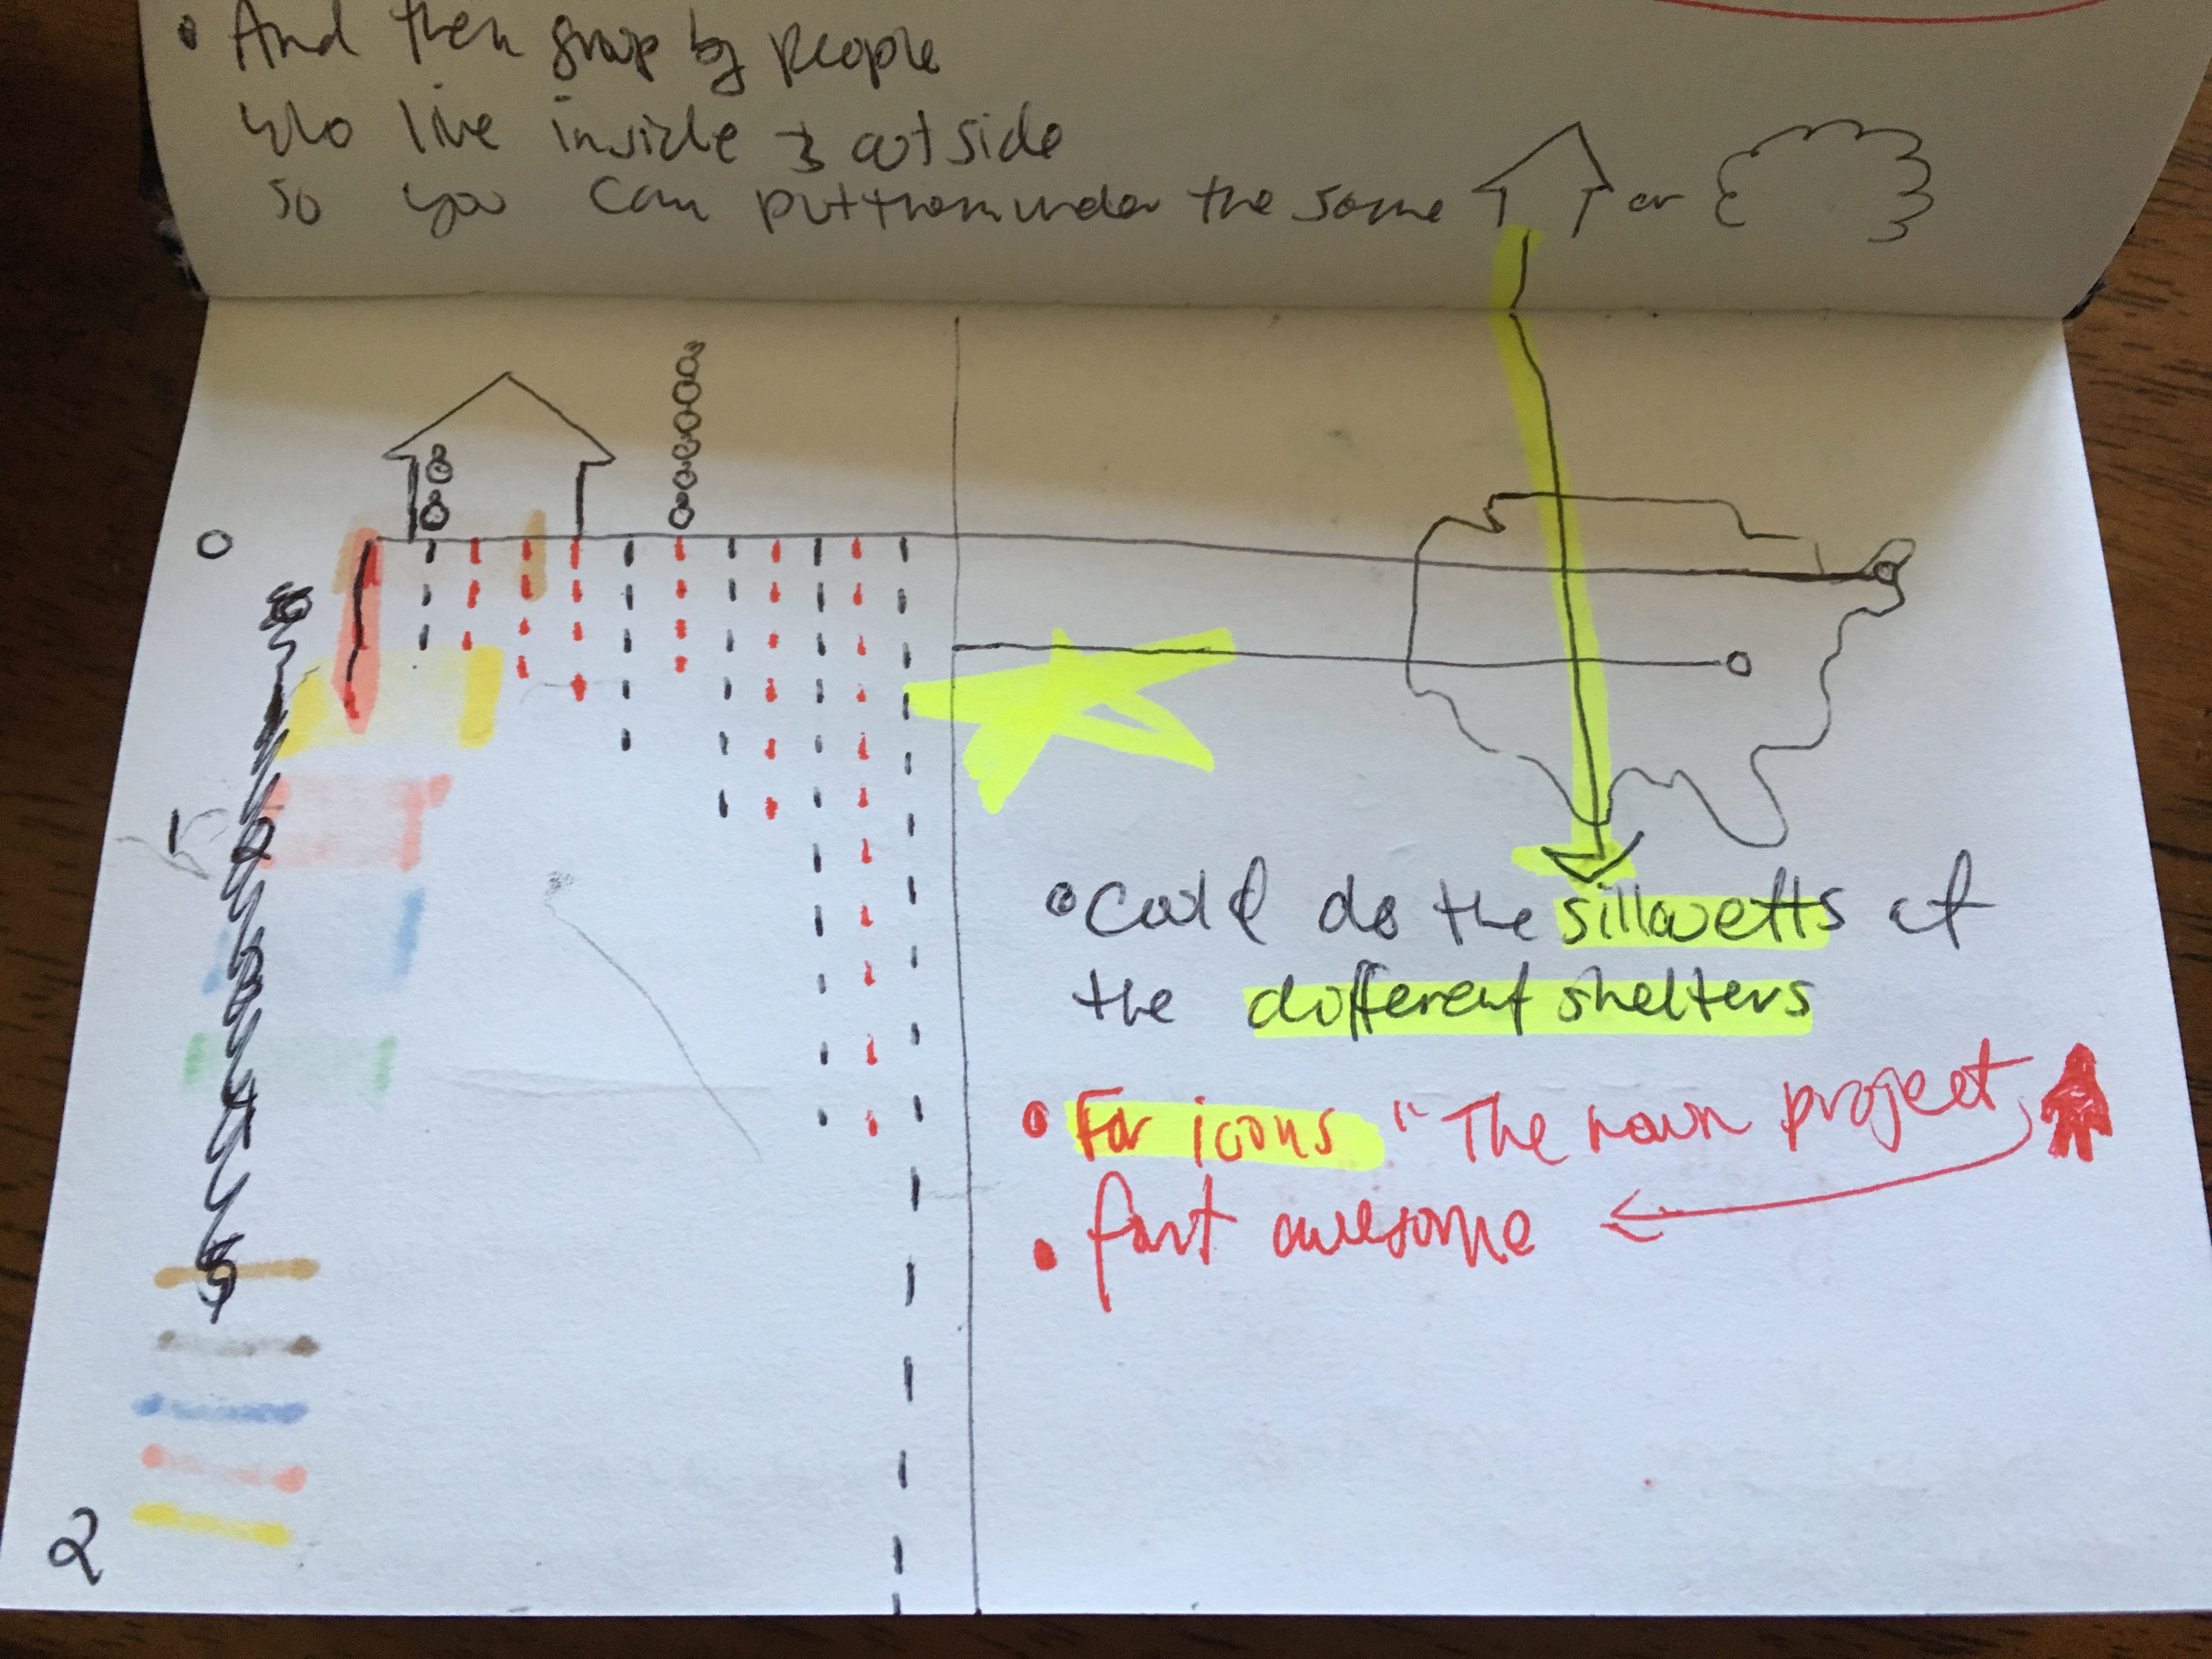 • And then group by people
who live inside & outside
so you can put them under the same or
0
1
2
3
4
5
2
• Could do the sillouetts at
the different shelters
• For icons "The noun project,
• font awesome